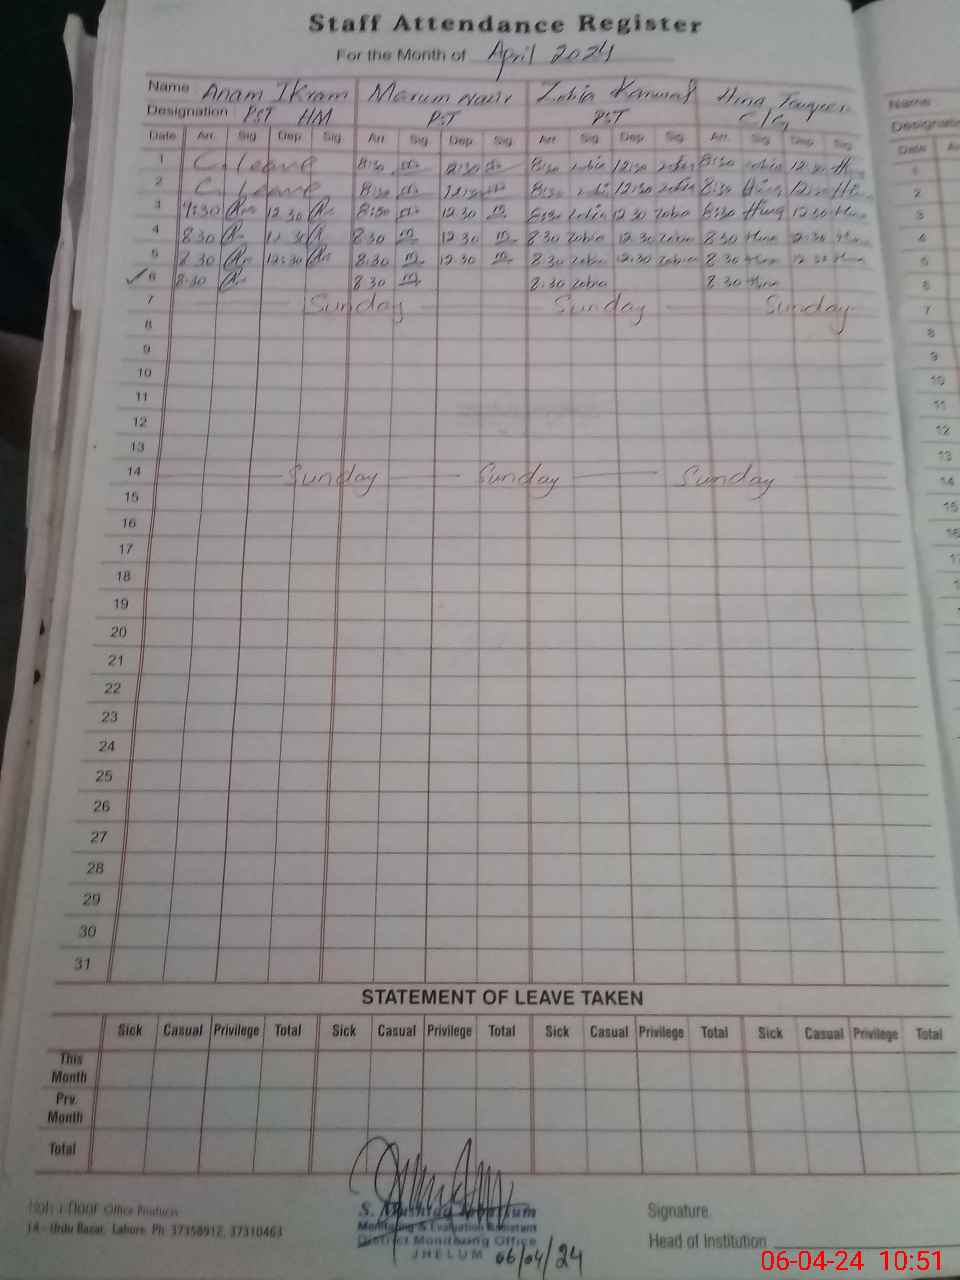 Staff Attendance Register
For the Month of April 2024
Name Anam Ikram
Designation PST HM PST PST C/G Name
Designation
Date Arr. Sig. Dep. Sig. Arr. Sig. Dep. Sig. Arr. Sig. Dep. Sig. Arr. Sig. Dep. Sig. Date
1 C. leave 8:30 8:30 zobia 12:30 zobia 8:30 1
2 C. leave 8:30 8:30 12:30 zobia 8:30 Hina 2
3 12.30 8:30 12.30 m 8:30 zobia 12.30 zobia 8:30 Hina 12.30 Hina 3
4 8.30 8.30 m 12.30 m 8.30 zobia 12.30 zobia 8.30 Hina 12.30 Hina 4
5 12:30 8.30 m 12.30 m 8.30 zobia 12.30 zobia 8.30 Hina 12.30 Hina 5
6 8.30 8.30 m 8.30 zobia 8.30 Hina 6
7 Sunday Sunday Sunday 7
8 8
9 9
10 10
11 11
12 12
13 13
14 Sunday Sunday Sunday 14
15 15
16 16
17
18
19
20
21
22
23
24
25
26
27
28
29
30
31
STATEMENT OF LEAVE TAKEN
Sick Casual Privilege Total Sick Casual Privilege Total Sick Casual Privilege Total Sick Casual Privilege Total
This Month
Prv. Month
Total
Office Products
14 - Urdu Bazar, Lahore. Ph: 37358912, 37310463
Monitoring & Evaluation Assistant
District Monitoring Office
JHELUM 06/04/24
Signature.
Head of Institution
06-04-24 10:51